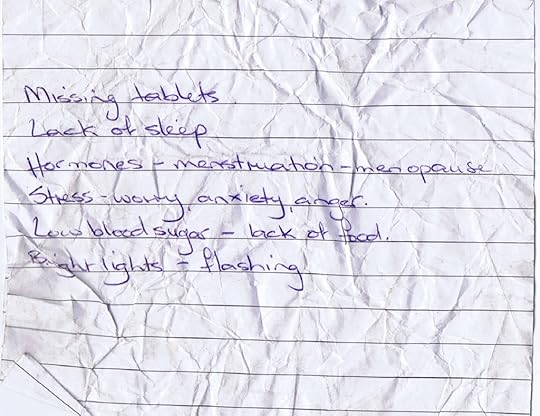 Missing tablets
Lack of sleep
Hormones - menstruation - menopause
Stress - worry, anxiety, anger.
Low blood sugar - lack of food.
Bright lights - flashing